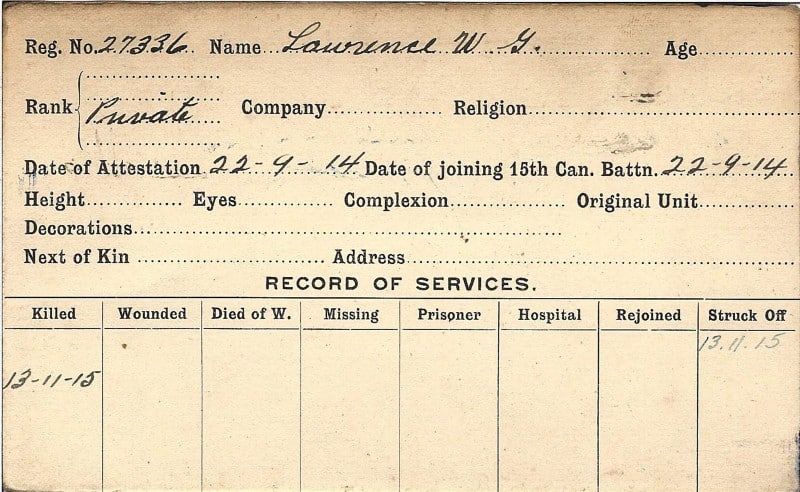 Reg. No. 27336 Name Lawrence W. G. Age
Rank Private Company Religion
Date of Attestation 22-9-14 Date of joining 15th Can. Battn. 22-9-14
Height Eyes Complexion Original Unit
Decorations
Next of Kin Address
RECORD OF SERVICES.
Killed Wounded Died of W. Missing Prisoner Hospital Rejoined Struck Off
13.11.15
13-11-15